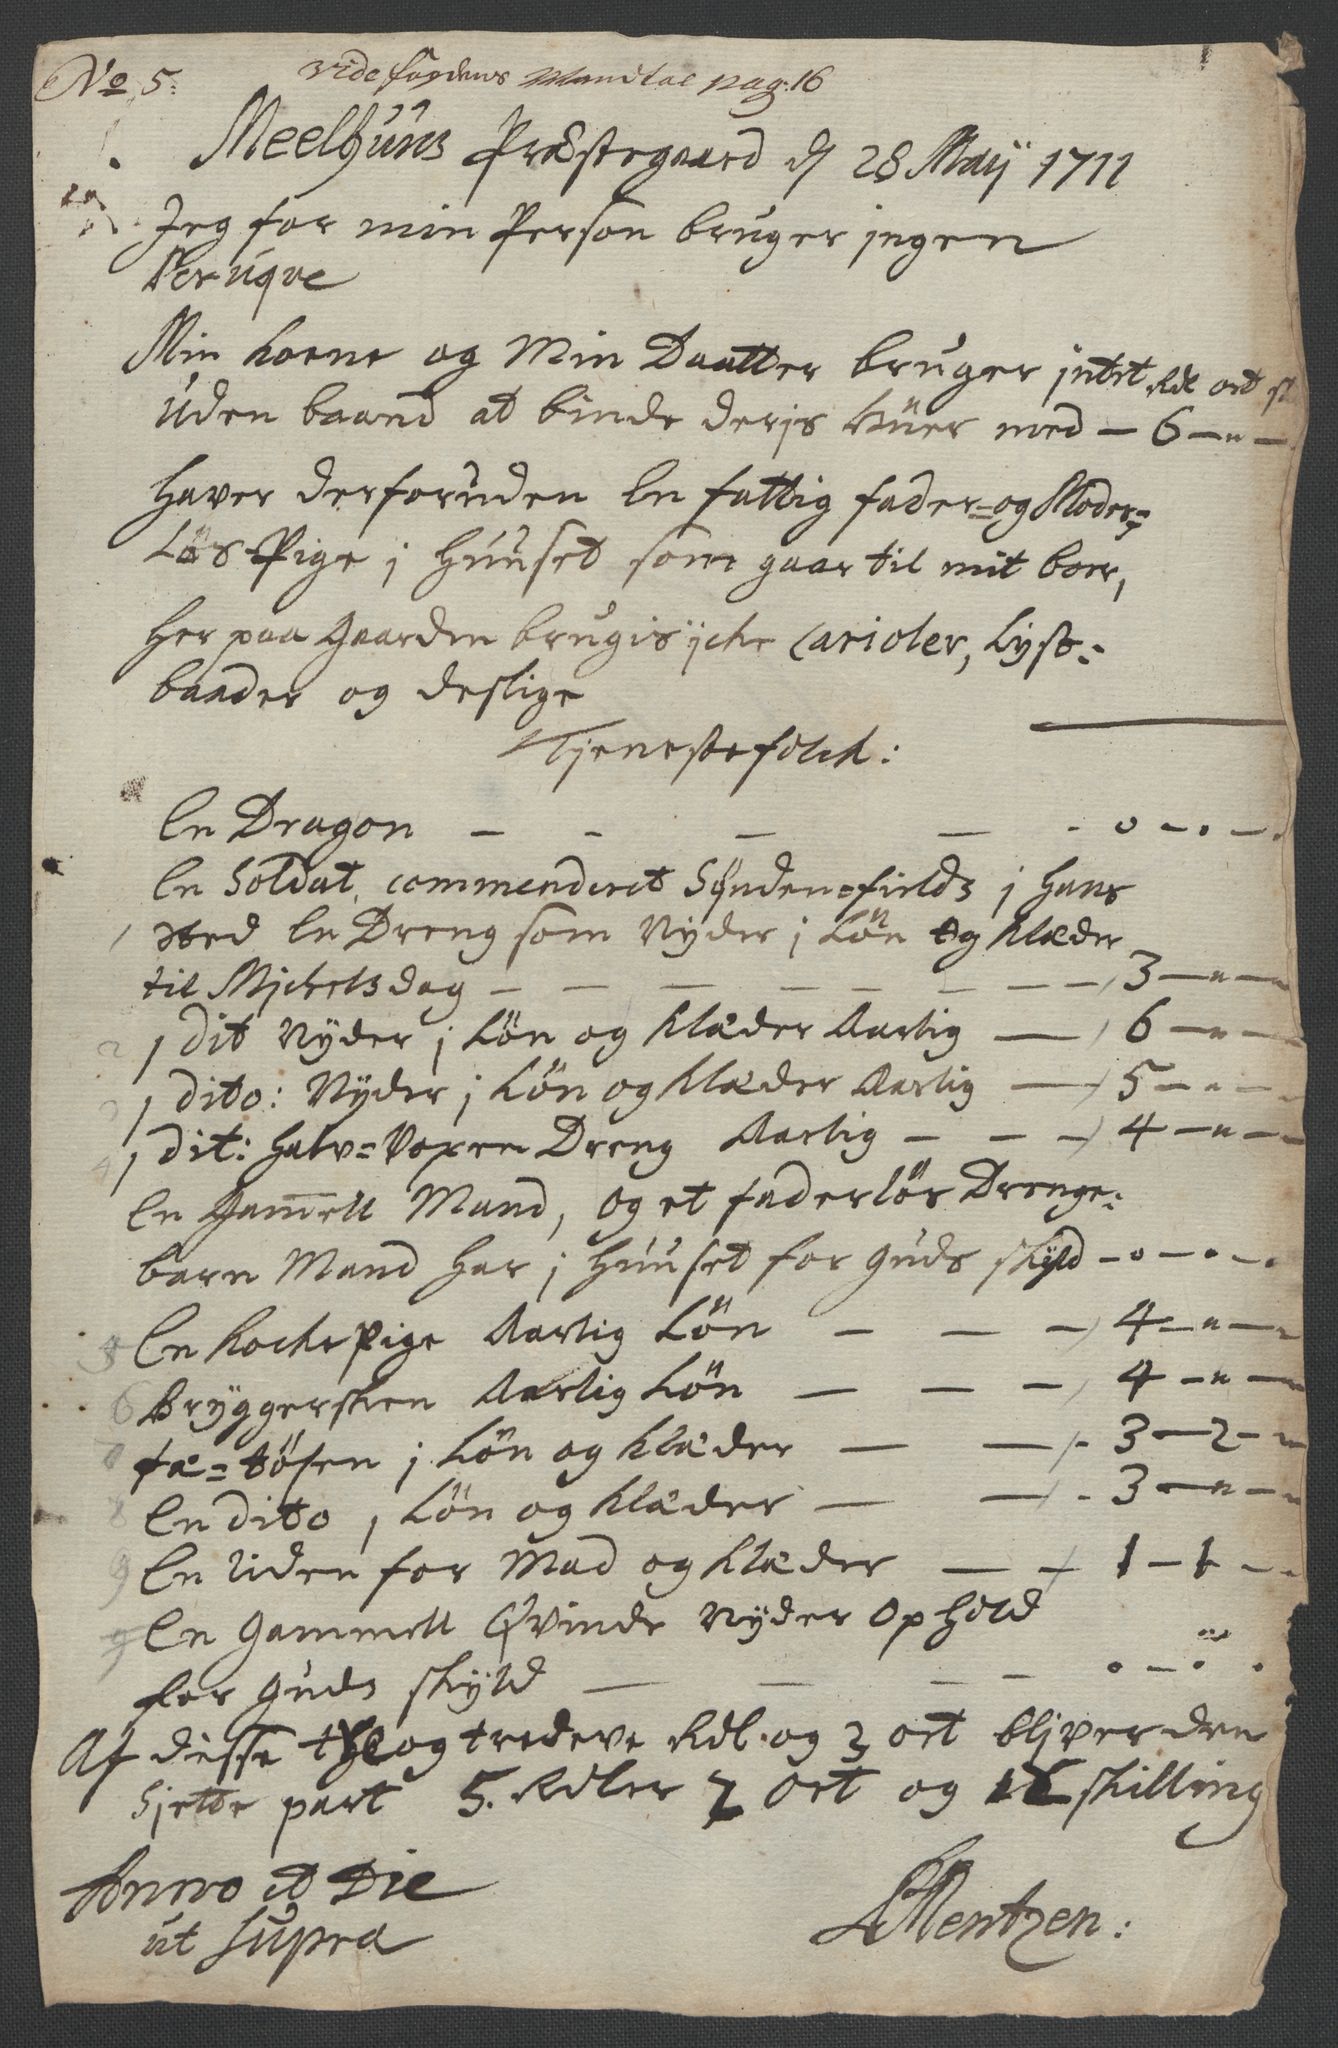 No 5:
vide fogdens Mandtal pag: 16
Meelhuus Præstegaard d 28 Maij 1711
Jeg for min Person bruger jngen
Peruqve
Min Kone og Min Daatter bruger jntet Rdl ort s
Uden baand at binde derjs Huer med — 6 — " —
Haver derforuden En fattig fader= og Moder=
Løs Pige j Huuset som gaar til mit boer,
Her paa Gaarden brugis jche Carioler, Lyst=
baader og deslige
Tjenestefolck:
En Dragon — — — — . 0 — . — .
En Soldat, commenderet Synden=fields j Hans
1 sted En Dreng som Nyder j Løn og Klæder
til Mjchelsdag — — — — — — — 3 — " — "
2 1 dit Nyder j Løn og Klæder Aarlig — 6 — " —
3 1 dito: Nyder j Løn og Klæder Aarlig — 5 — " —
4 1 dit: Halv=Voxen Dreng Aarlig — — — 4 — " —
En Gammell Mand, og et faderløs Drenge=
barn Mand Har j Huuset for Guds skyld — 0 — . — .
5 En KockePige Aarlig Løn — — — 4 — " — "
6 Bryggersken Aarlig Løn — — — 4 — " — "
7 fæ=tøsen j Løn og Klæder — — 3 — 2 — "
8 En dito j Løn og Klæder — — 3 — " — "
9 En liden for Mad og Klæder — — 1 — 1 — "
9 En Gammell Qvinde Nyder Ophold
for Guds skyld — — — — . — . .
Af diesse og tredeve Rdl. og 3 ort bljver den
Sjette part 5. Rdler 2 ort og skilling
Anno et Die
ut supra
Mentzen: